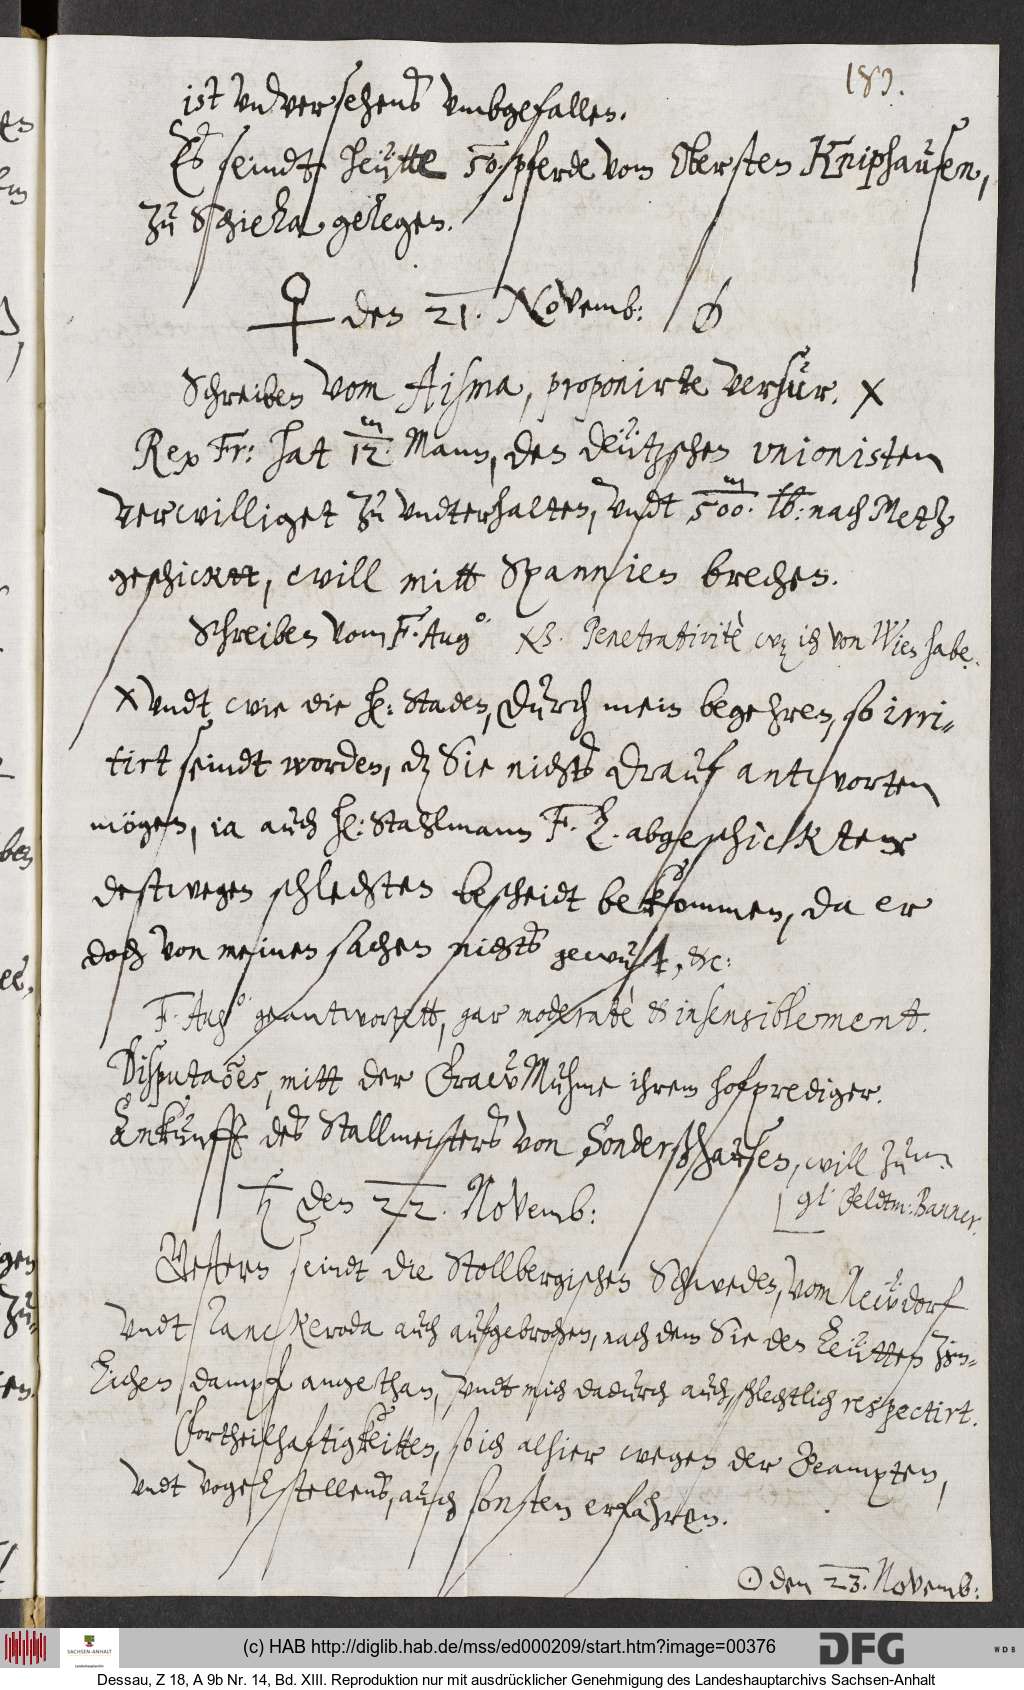 183.
ist vndversehens vmbgefallen.
Es seindt heütte 50 pferde vom Obersten Kniphausen,
zu Schiehla gelegen.
♀ den 21. Novemb:
Schreiben vom Aisma, proponirte versur. X
Rex Fr: hat 12 m Mann, den deützschen vnionisten
verwilliget zu vndterhalten, vndt 500 m. lb: nach Metz
geschicktt, will mitt Spannien brechen.
Schreiben vom F. Aug° NB. Penetrativitè wz ich von Wien habe.
X vndt wie die H: Staden, durch mein begehren, so irri-
tirt seindt worden, dz Sie nichts drauf antworten
mögen, ia auch H: Stahlmann F. H. abgeschickter
destwegen schlechten bescheidt bekommen, da er
doch von meinen sachen nichts gewust, etc:
F. Aug° geantwortett, gar moderatè et insensiblement.
Disputaões, mitt der Fraw Muhme ihrem hofprediger.
Ankunfft des Stallmeisters von Sonderßhausen, will zum
gl Feldtm: Banner.
♄ den 22. Novemb:
Gestern seindt die Stollbergischen Schweden, vom Newdorf
vndt Danckeroda auch aufgebrochen, nach dem Sie den Leütten zim-
lichen dampf angethan, vndt mich dadurch auch schlechtlich respectirt.
Vortheilhaftigkeitten, so ich alhier wegen der Beampten,
vndt vogelstellens, auch sonsten erfahren.
☉ den 23. Novemb:
SACHSEN-ANHALT
Landeshauptarchiv
(c) HAB http://diglib.hab.de/mss/ed000209/start.htm?image=00376
DFG
WDB
Dessau, Z 18, A 9b Nr. 14, Bd. XIII. Reproduktion nur mit ausdrücklicher Genehmigung des Landeshauptarchivs Sachsen-Anhalt